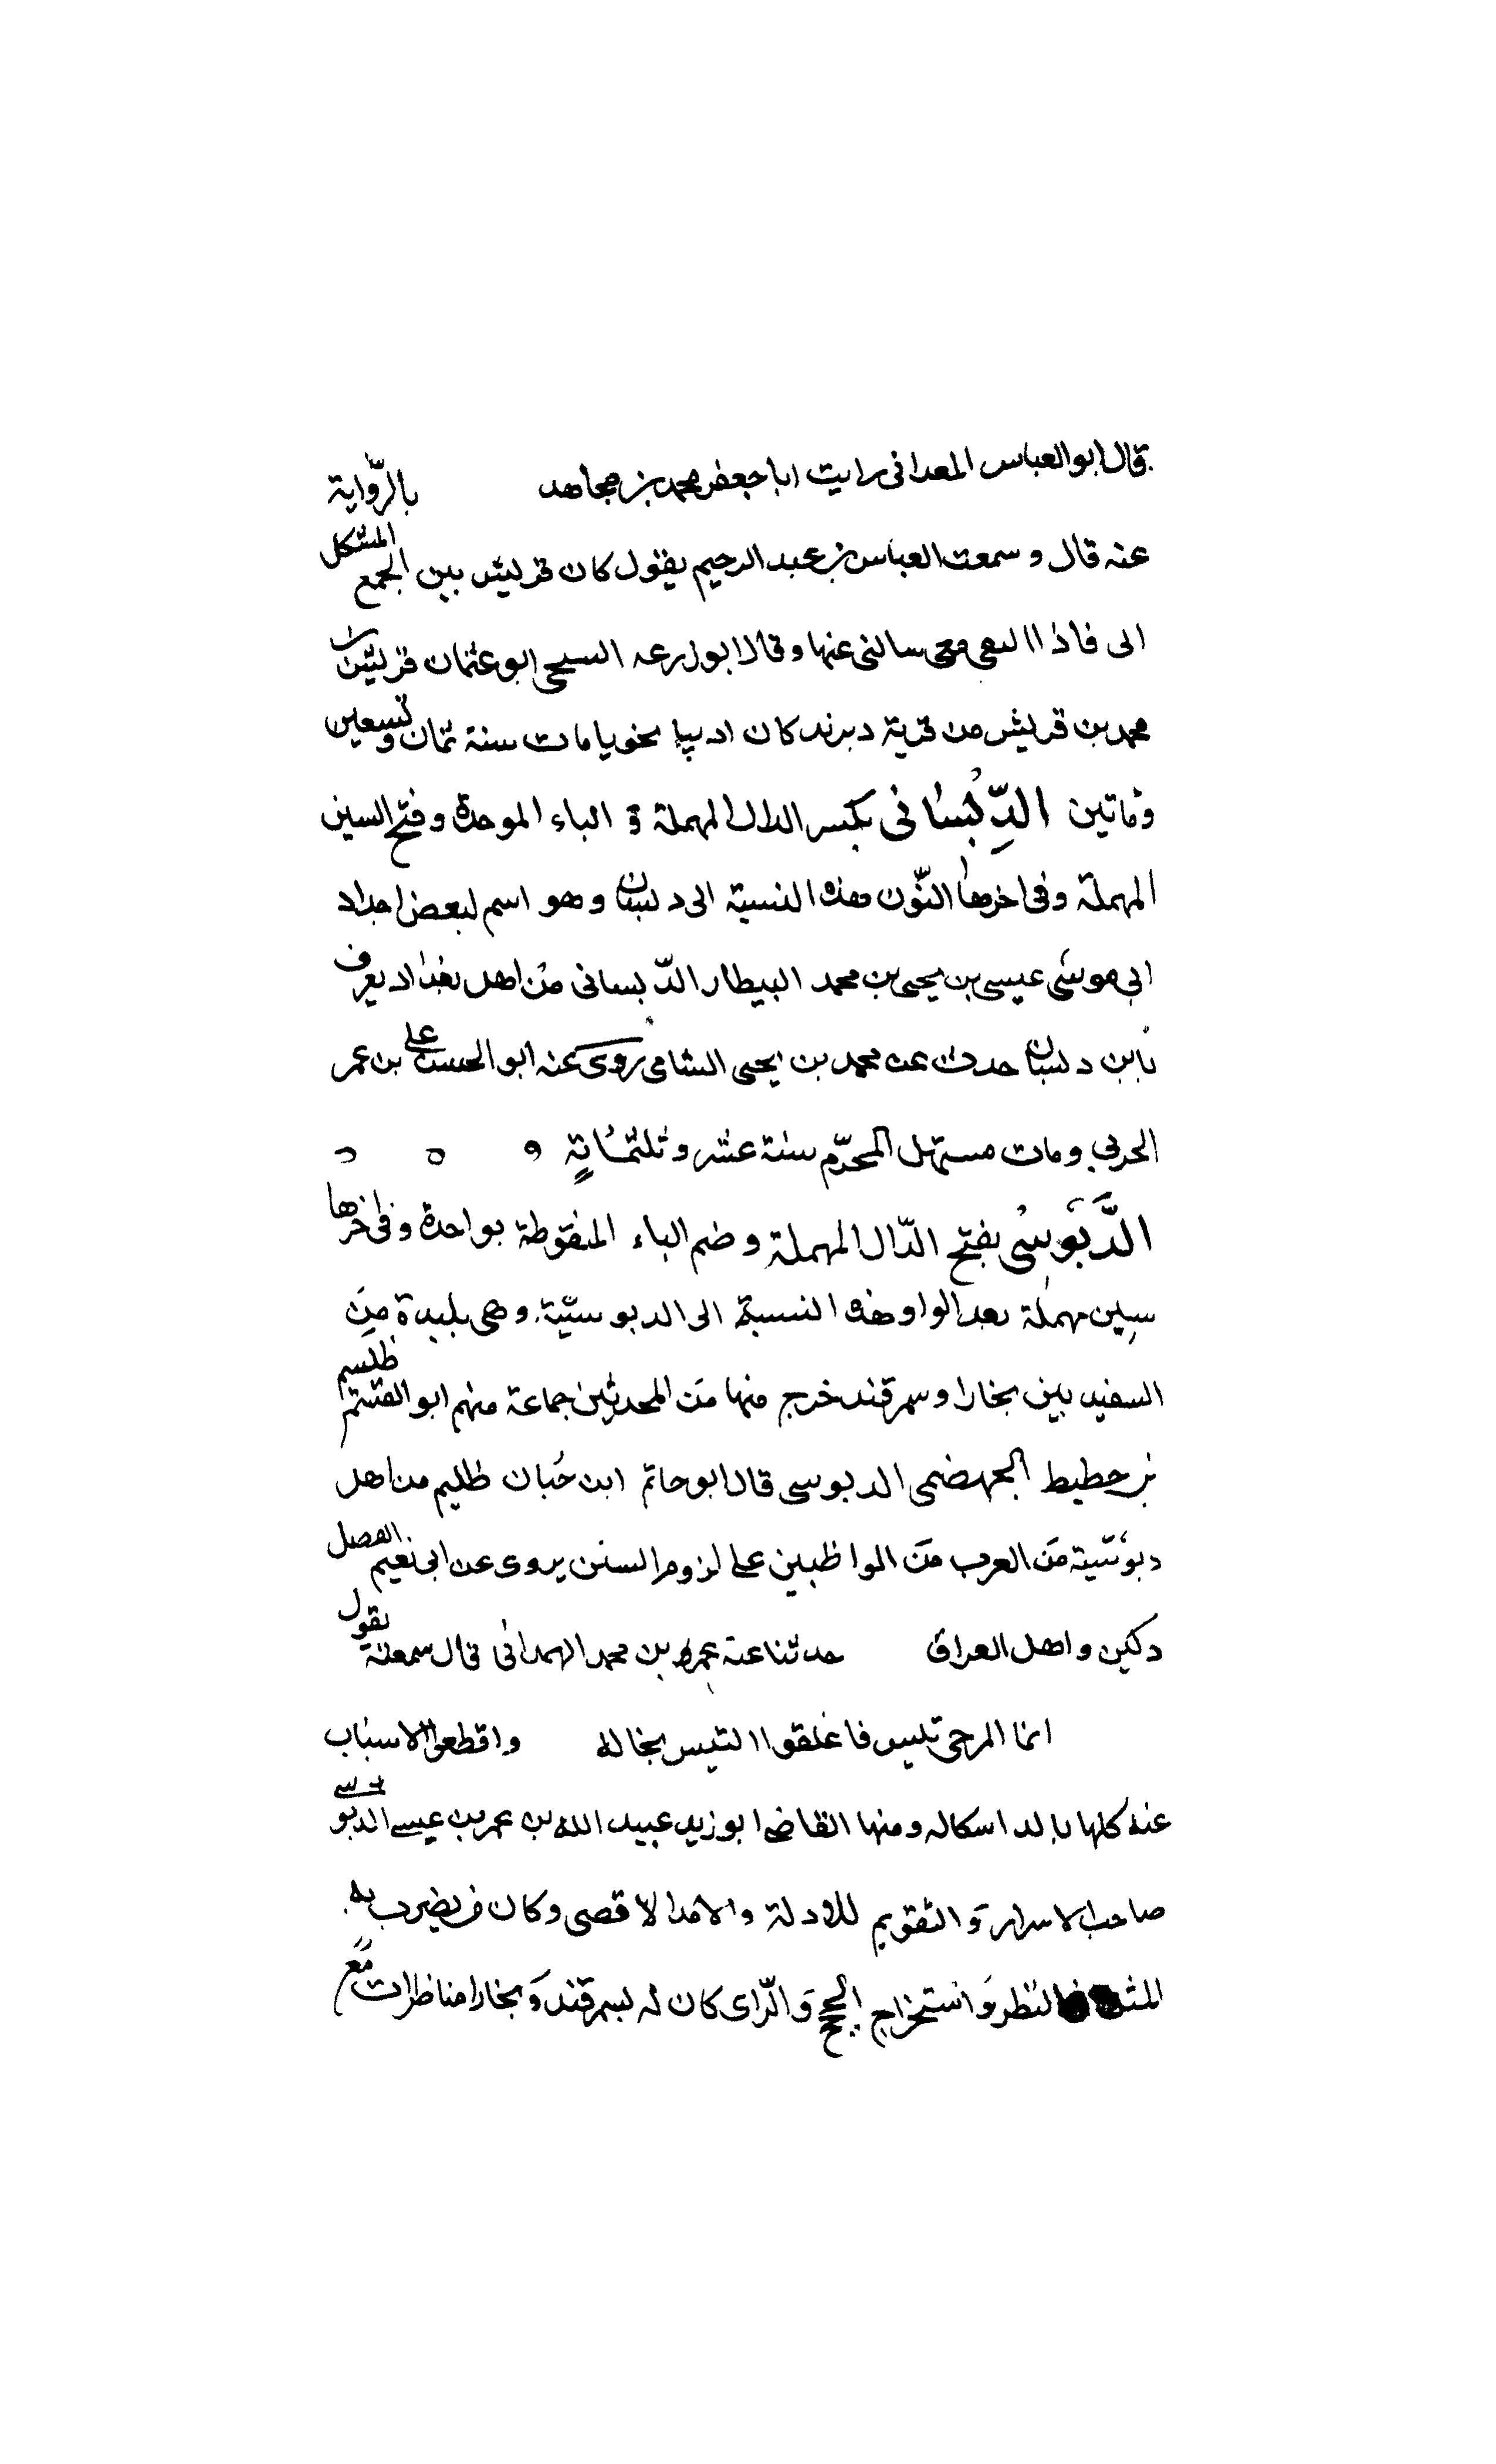 قال ابو العباس المعدانى رايت ابا جعفر محمد بن مجاهد بالرّواية
عنه قال و سمعت العباس بن عبد الرحيم يقول كان قريش بين الجمع المشكل
الى فاذا سالنى عنها وقال ابو زرعه السبحى ابو عثمان قريش بن
محمد بن قريش من قرية دبرند كان اديبا نحويا مات سنة ثمان وتسعين
وماتين الدِّبْسَانى بكسر الدال المهملة و الباء الموحدة وفتح السين
المهملة وفى اخرها النّون هذه النسبة الى دبسان وهو اسم لبعض اجداد
ابى موسى عيسى بن يحيى بن محمد البيطار الدّبسانى من اهل بغداد يعرف
بابن دبسان حدث عن محمد بن يحيى الشامى روى عنه ابو الحسن على بن عمر
الحربى ومات مستهل المحرّم سنة عشر وثلثمائة
الدَّبُوسْى بفتح الدّال المهملة وضم الباء المنقوطة بواحدة وفى اخرها
سين مهملة بعد الواو هذه النسبة الى الدبوسيّة وهى بليدة مِنَ
السغد بين بخارا وسمرقند خرج منها من المحدثين جماعة منهم ابو القسم ظليم
بن حطيط الجهضمى الدبوسى قال ابو حاتم ابن حُبان ظليم من اهل
دبوسّية مَن العرب مَن المواظبين على لزوم السنن يروى عن ابى نعيم الفضل
دكين واهل العراق حدثنا عنه عمر بن محمد الهمدانى قال سمعته يقول
انما المرجى تليس فاغلقوا التيس بخاله واقطعوا الاسباب
عنه كلها بالد اسكاله ومنها القاضى ابو زيد عبيد الله بن عمر بن عيسى الدبوسى
صاحب الاسرار وَ التقويم للادلة والامد الاقصى وكان من يضرب به
المثل فى النظر وَ استخراج الحجج وَ الرّاى كان له بسمرقند وَ بخارا مناظرات مع